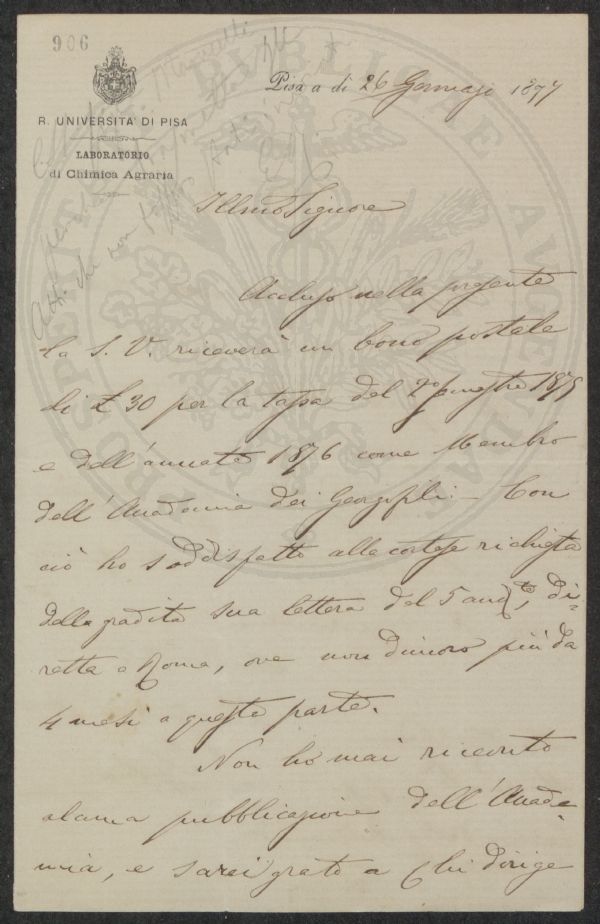 906
Pisa a dì 26 Gennajo 1877
R. UNIVERSITÀ DI PISA
LABORATORIO
di Chimica Agraria
Illmo Signore
Acclusa nella presente
la S. V. riceverà un bono postale
di £ 30 per la tassa del 2° semestre 1875
e dell'annata 1876 come Membro
dell'Accademia dei Georgofili. – Con
ciò ho soddisfatto alla cortese richiesta
della gradita sua lettera del 5 andte, di-
retta a Roma, ove non dimoro più da
4 mesi a questa parte.
Non ho mai ricevuto
alcuna pubblicazione dell'Accade-
mia, e sarei grato a chi dirige